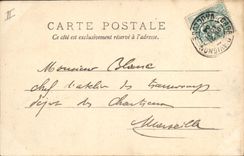 II
CARTE POSTALE
Ce côté est exclusivement réservé à l'adresse.
Monsieur Blanc
chef d'atelier des Tramways
dépôt des Chartreux
Marseille